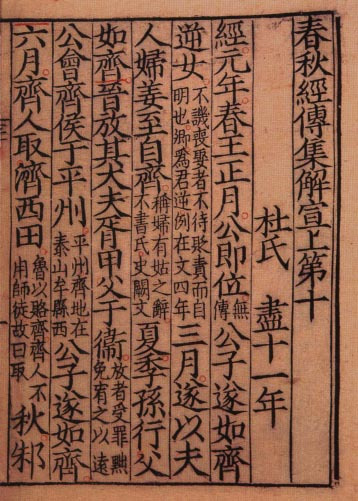 春秋經傳集解宣上第十
杜氏　盡十一年
經元年春王正月公即位無傳公子遂如齊
逆女不譏喪娶者不待貶責而自明也卿爲君逆例在文四年三月遂以夫
人婦姜至自齊稱婦有姑之辭不書氏史闕文夏季孫行父
如齊晉放其大夫胥甲父于衞放者受罪黜免宥之以遠
公會齊侯于平州平州齊地在泰山牟縣西公子遂如齊
六月齊人取濟西田魯以賂齊齊人不用師徒故曰取秋邾